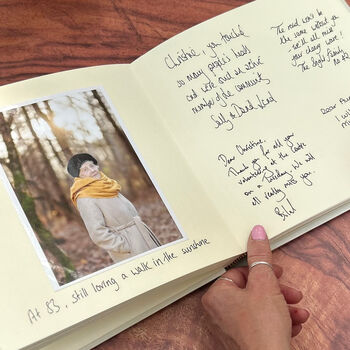 At 83, still loving a walk in the sunshine
Christine, you touched
so many people's hearts
and were such an active
member of the community
Sally & David
The road won't be
the same without you
- we'll all miss
your cheery wave!
The Family
Dear Christine,
Thank you for all your
volunteering at the Centre
on a Tuesday. We will
all really miss you.
Dear
I will